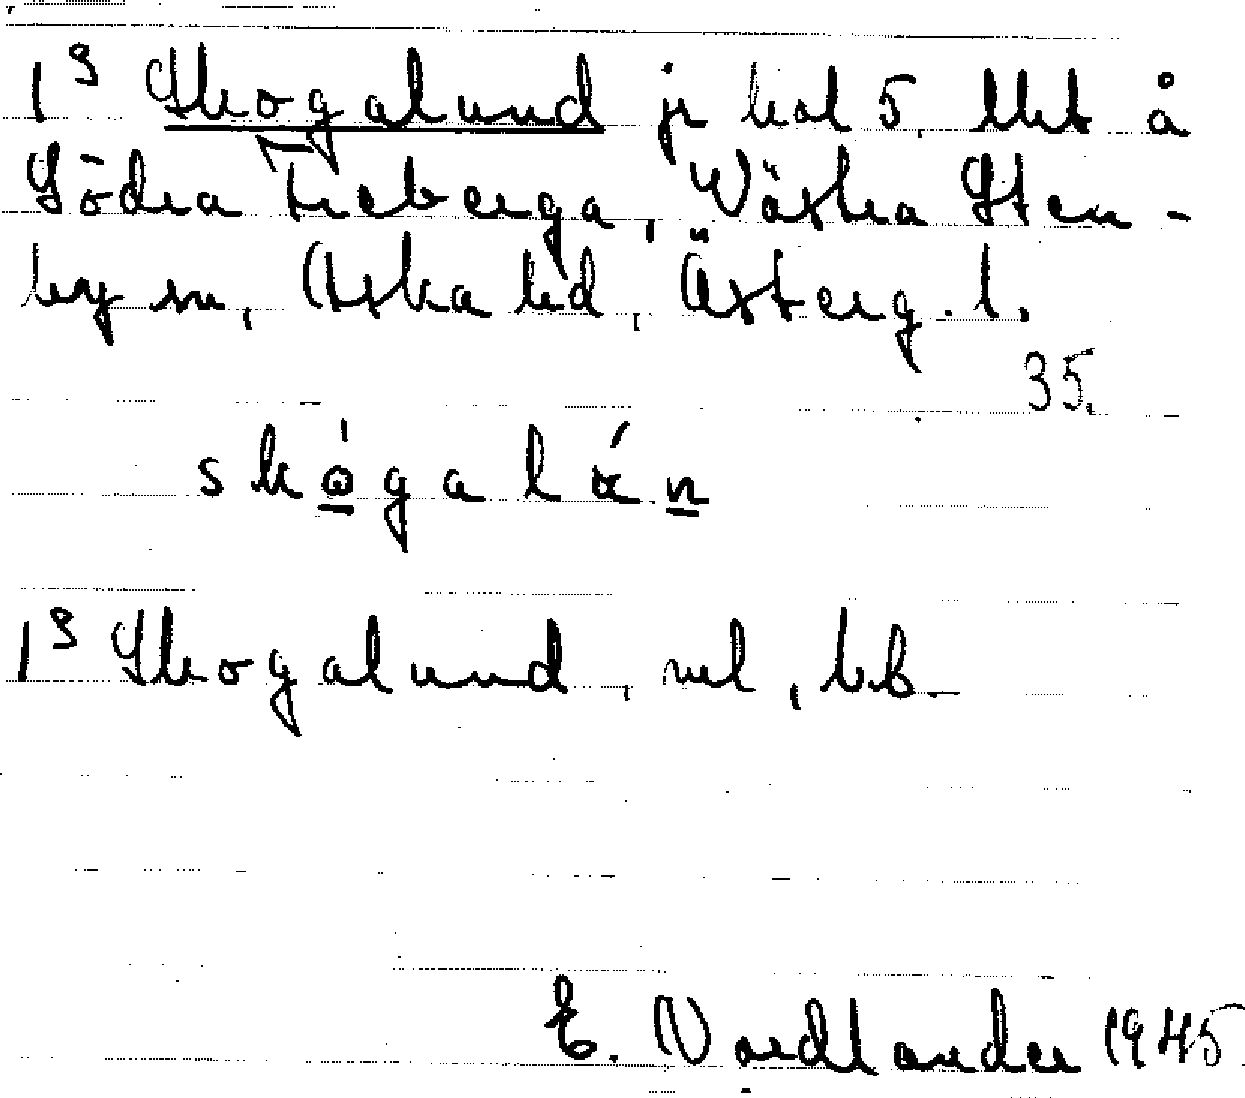 1⁹ Skogalund jr kol 5, Ubt å
Södra Freberga, Västra Sten-
by sn, Aska hd, Österg. l.
35.
skògalún
1⁹ Skogalund, vel, bb.
E. Nordlander 1945